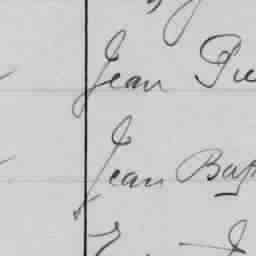 Jean Pie
Jean Bap